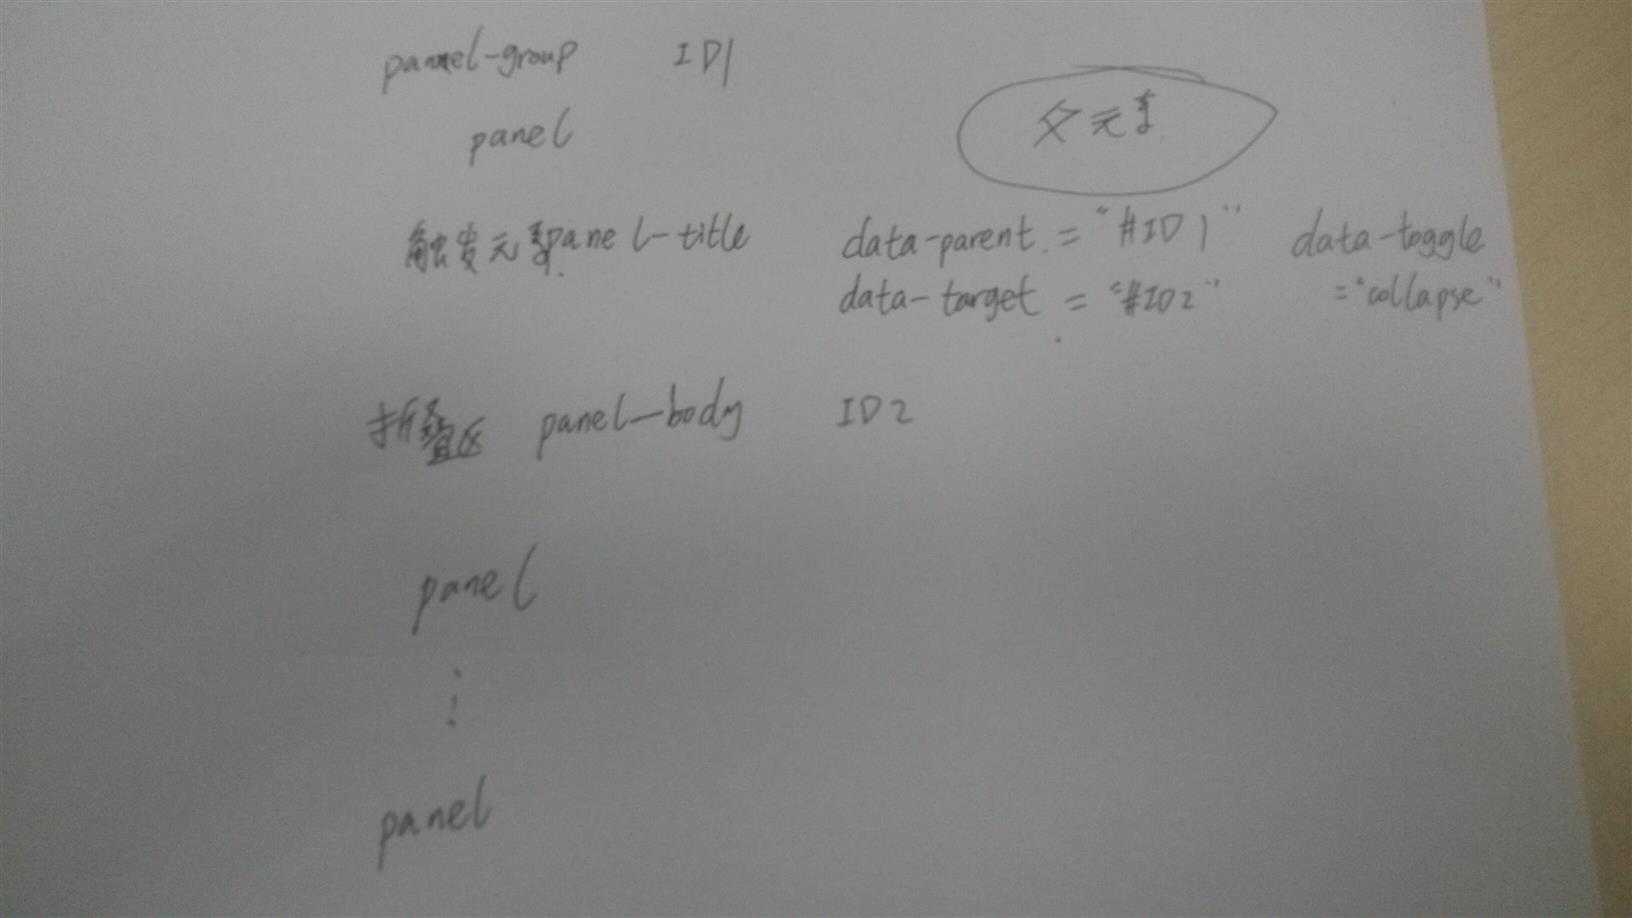 pannel-group ID1
panel
父元素
触发元素panel-title data-parent = "#ID1" data-toggle
data-target = "#ID2" ="collapse"
折叠区 panel-body ID2
panel
⋮
panel